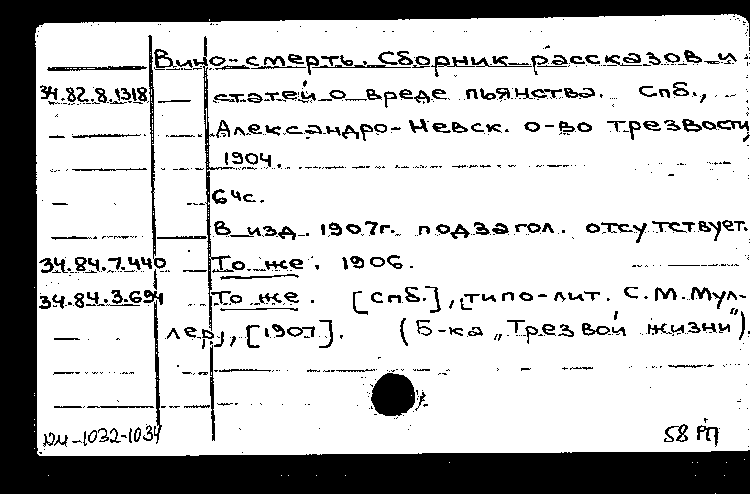 Вино-смерть. Сборник рассказов и
34.82.8.1318 статей о вреде пьянства. Спб.,
Александро-Невск. о-во трезвости,
1904.
64с.
В изд. 1907г. подзагол. отсутствует.
34.84.7.440 То же. 1906.
34.84.3.691 То же. [Спб.], [типо-лит. С.М.Мул-
лер], [1907]. (Б-ка „Трезвой жизни").
-1032-1034 58 РП